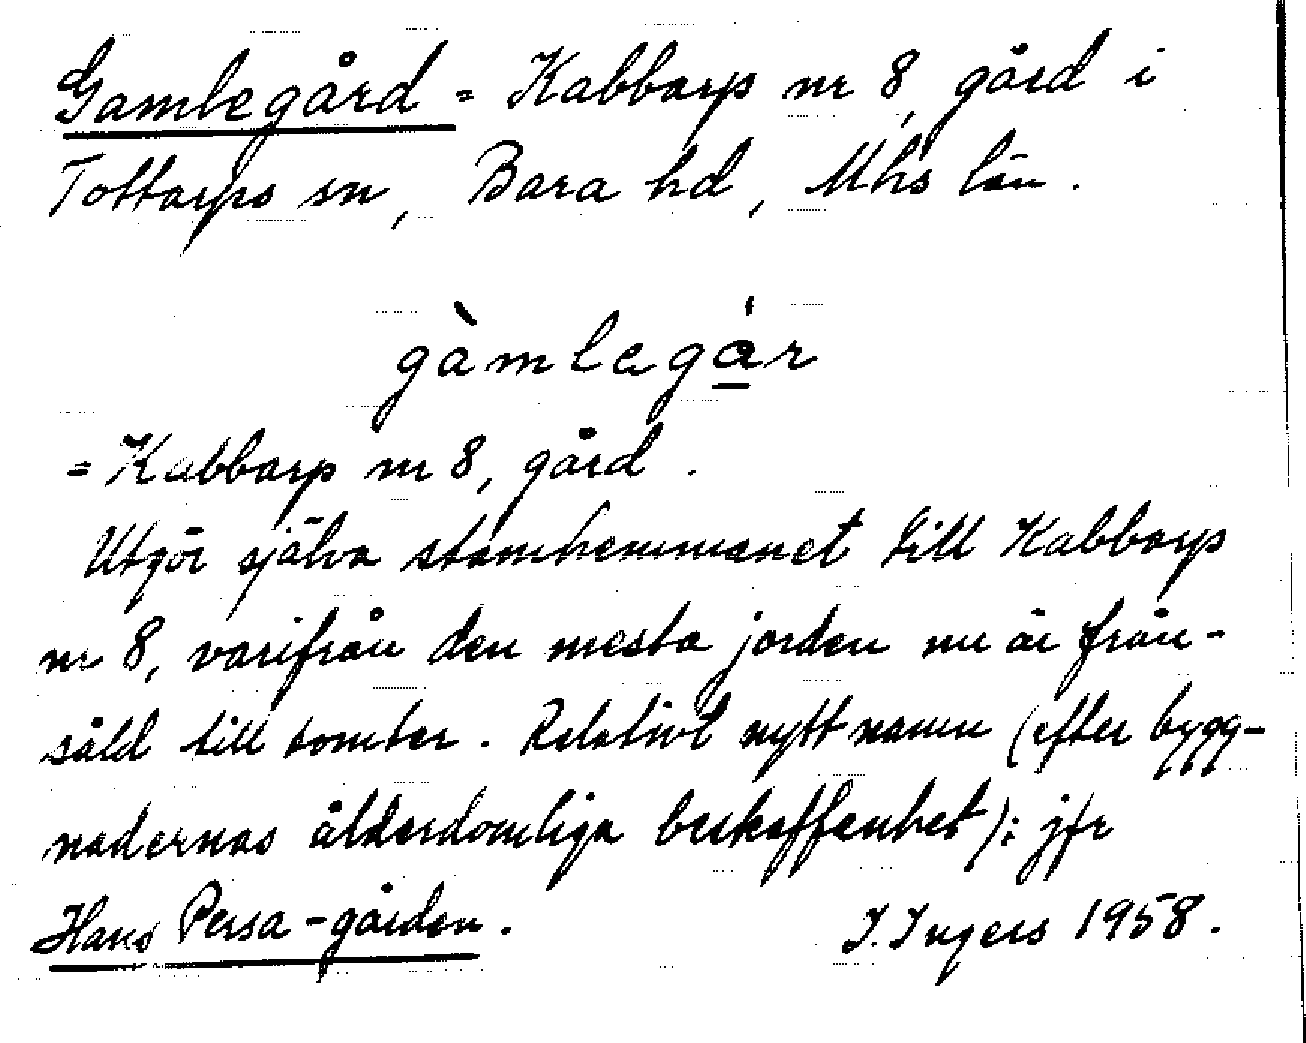 Gamlegård = Kabbarps nr 8, gård i
Tottarps sn, Bara hd, Mhs län.
gàmlegár
= Kabbarp nr 8, gård.
Utgör själva stamhemmanet till Kabbarps
nr 8, varifrån den mesta jorden nu är från-
såld till tomter. Relativt nytt namn (efter bygg-
nadernas ålderdomliga beskaffenhet); jfr
Hans Persa-gården. I. Ingers 1958.